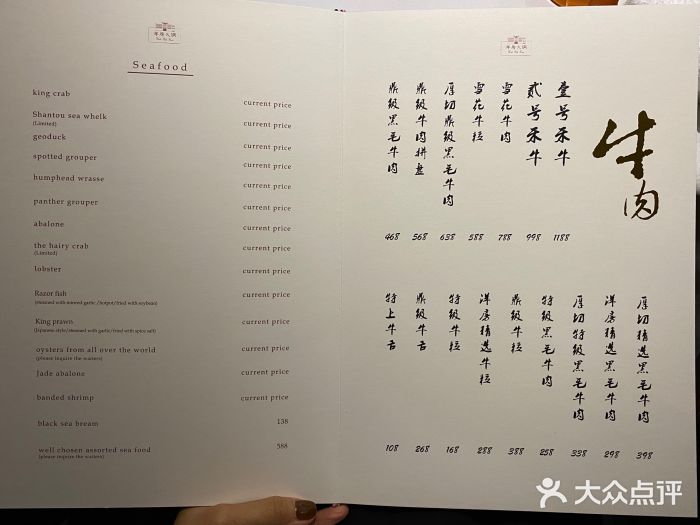 洋房火锅
Seafood
king crab current price
Shantou sea whelk current price
(Limited)
geoduck current price
spotted grouper current price
humphead wrasse current price
panther grouper current price
abalone current price
the hairy crab current price
(Limited)
lobster current price
Razor fish current price
(steamed with minced garlic/hotpot/fried with soybean)
King prawn current price
(Japanese style/steamed with garlic/fried with spice salt)
oysters from all over the world current price
(please inquire the waiters)
Jade abalone current price
banded shrimp current price
black sea bream 138
well chosen assorted sea food 588
(please inquire the waiters)
洋房火锅
牛肉
壹号禾牛 1188
贰号禾牛 998
雪花牛肉 788
雪花牛粒 588
厚切鼎级黑毛牛肉 638
鼎级牛肉拼盘 568
鼎级黑毛牛肉 468
厚切精选黑毛牛肉 398
洋房精选黑毛牛肉 298
厚切特级黑毛牛肉 338
特级黑毛牛肉 258
鼎级牛粒 388
洋房精选牛粒 288
特级牛粒 168
鼎级牛舌 268
特上牛舌 108
大众点评